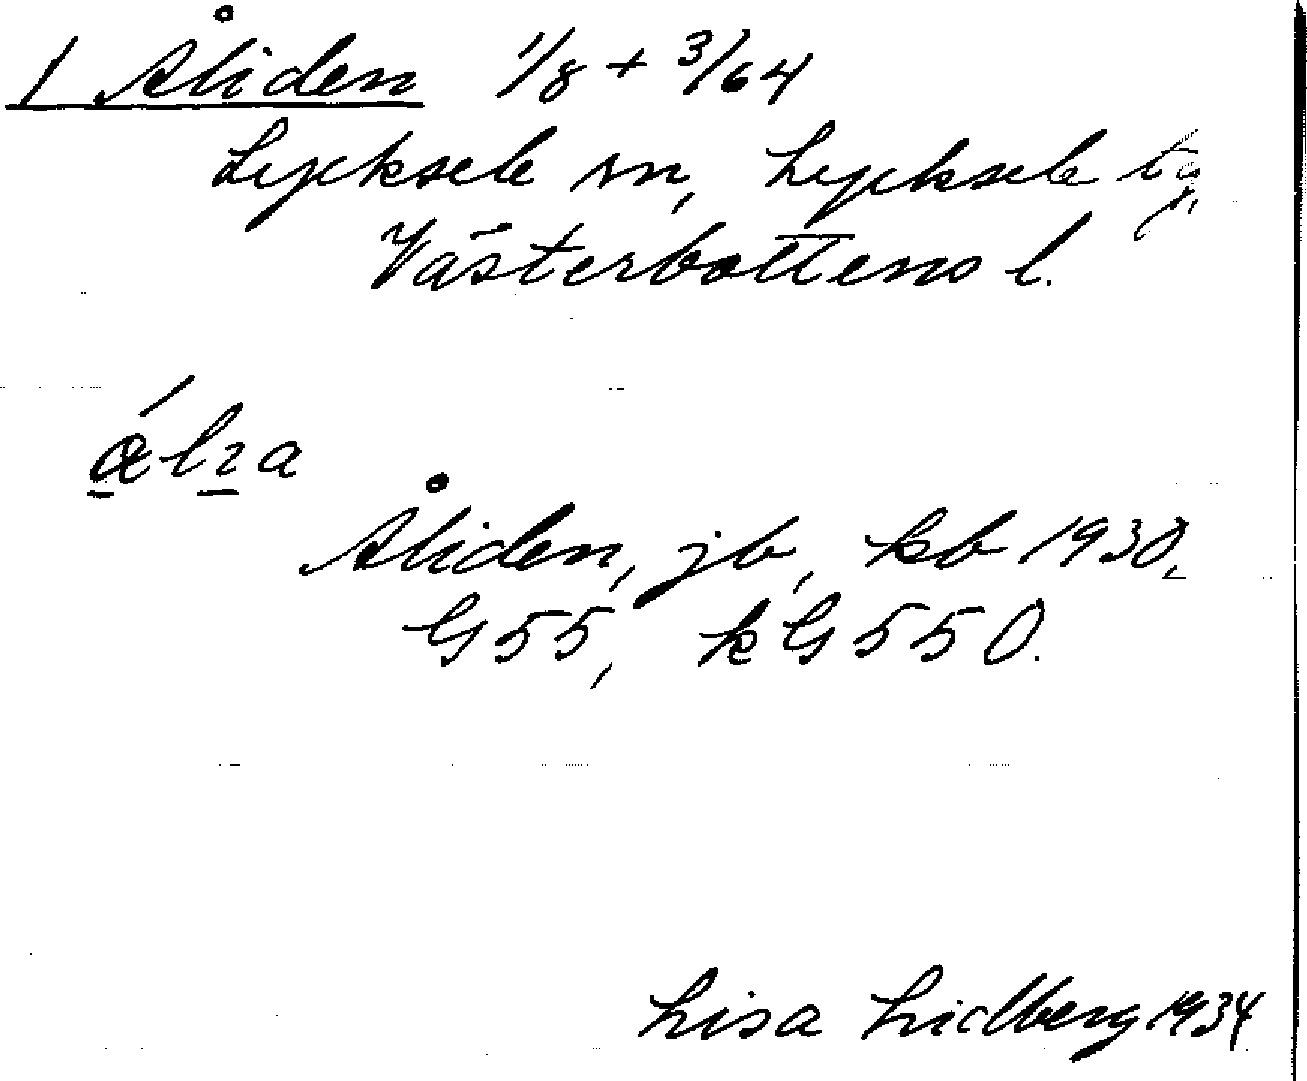 1 Åliden 1/8 + 3/64
Lycksele sn, Lycksele tg,
Västerbottens l.
Åliden, jb, kb 1930,
G55, kG550.
Lisa Lidberg 1934